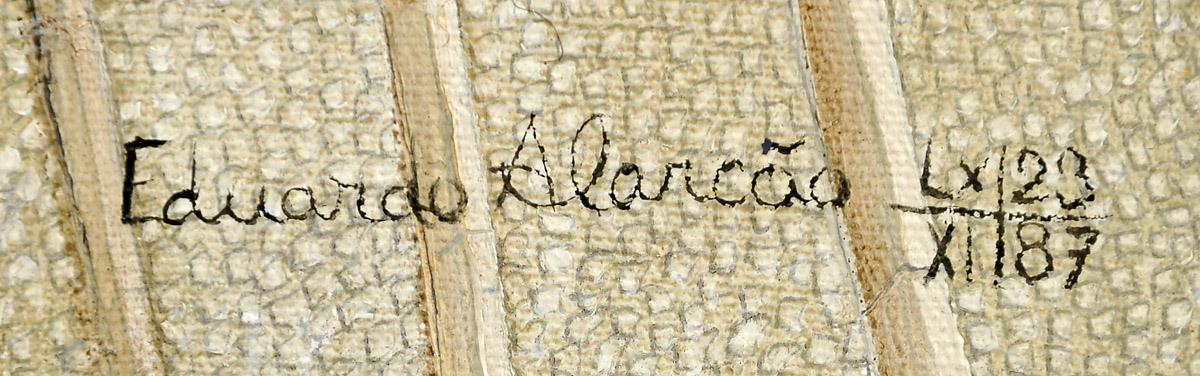 Eduardo Alarcão Lx 23
XI 87